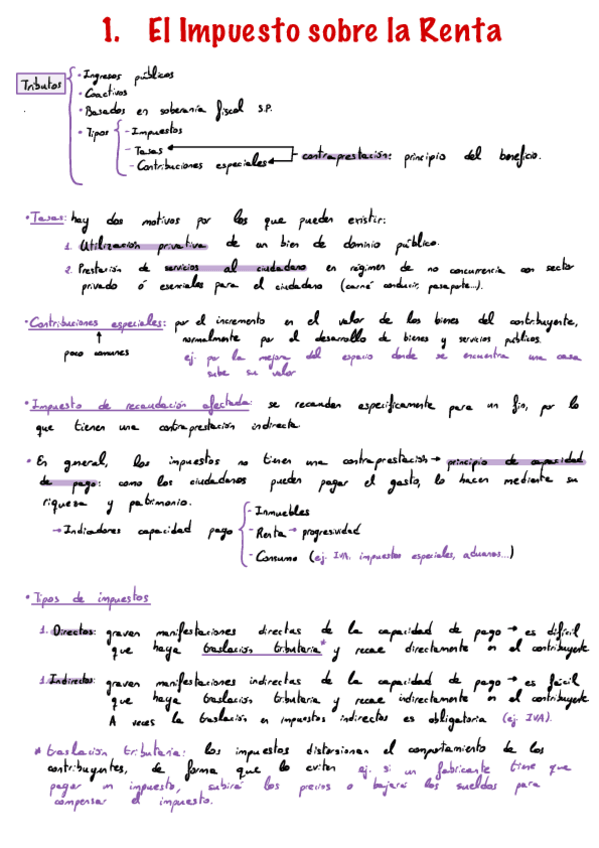 1. El Impuesto sobre la Renta
Tributos
· Ingresos públicos
· Coactivos
· Basados en soberanía fiscal S.P.
· Tipos
- Impuestos
- Tasas
- Contribuciones especiales
contraprestación: principio del beneficio.
· Tasas: hay dos motivos por los que pueden existir:
1. Utilización privativa de un bien de dominio público.
2. Prestación de servicios al ciudadano en régimen de no concurrencia con sector
privado ó esenciales para el ciudadano (carné conducir, pasaporte...).
· Contribuciones especiales: por el incremento en el valor de los bienes del contribuyente,
poco comunes
normalmente por el desarrollo de bienes y servicios públicos.
ej: por la mejora del espacio donde se encuentra una casa
sube su valor
· Impuesto de recaudación afectada: se recaudan específicamente para un fin, por lo
que tienen una contraprestación indirecta
· En general, los impuestos no tienen una contraprestación → principio de capacidad
de pago: como los ciudadanos pueden pagar el gasto, lo hacen mediante su
riqueza y patrimonio.
→ Indicadores capacidad pago
- Inmuebles
- Renta → progresividad
- Consumo (ej. IVA, impuestos especiales, aduanas...)
· Tipos de impuestos
1. Directos: gravan manifestaciones directas de la capacidad de pago → es difícil
que haya traslación tributaria* y recae directamente en el contribuyente
1. Indirectos: gravan manifestaciones indirectas de la capacidad de pago → es fácil
que haya traslación tributaria y recae indirectamente en el contribuyente
A veces la traslación en impuestos indirectos es obligatoria (ej IVA).
* traslación tributaria: los impuestos distorsionan el comportamiento de los
contribuyentes, de forma que lo eviten ej. si un fabricante tiene que
pagar un impuesto, subirá los precios o bajará los sueldos para
compensar el impuesto.